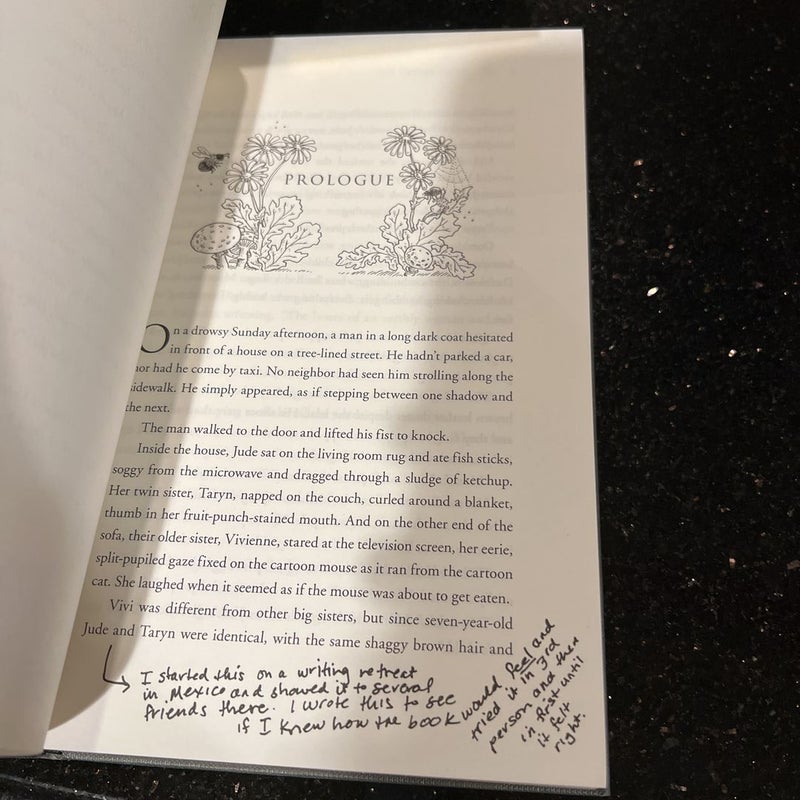 PROLOGUE
On a drowsy Sunday afternoon, a man in a long dark coat hesitated
in front of a house on a tree-lined street. He hadn't parked a car,
nor had he come by taxi. No neighbor had seen him strolling along the
sidewalk. He simply appeared, as if stepping between one shadow and
the next.
The man walked to the door and lifted his fist to knock.
Inside the house, Jude sat on the living room rug and ate fish sticks,
soggy from the microwave and dragged through a sludge of ketchup.
Her twin sister, Taryn, napped on the couch, curled around a blanket,
thumb in her fruit-punch-stained mouth. And on the other end of the
sofa, their older sister, Vivienne, stared at the television screen, her eerie,
split-pupiled gaze fixed on the cartoon mouse as it ran from the cartoon
cat. She laughed when it seemed as if the mouse was about to get eaten.
Vivi was different from other big sisters, but since seven-year-old
Jude and Taryn were identical, with the same shaggy brown hair and
I started this on a writing retreat
in Mexico and showed it to several
friends there. I wrote this to see
if I knew how the book would feel and
tried it in 3rd
person and then
in first until
it felt
right.